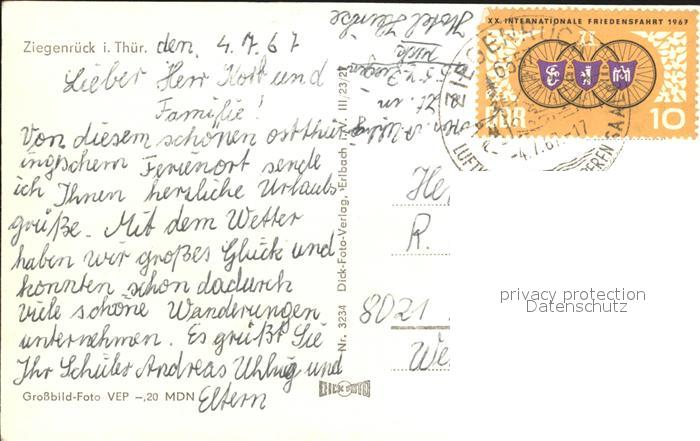 Ziegenrück i. Thür. den. 4.7.67
Lieber Herr Kort und
Familie!
Von diesem schönen ostthür
ingischem Ferienort sende
ich Ihnen herzliche Urlaubs-
grüße. Mit dem Wetter
haben wir großes Glück und
konnten schon dadurch
viele schöne Wanderungen
unternehmen. Es grüßt Sie
Ihr Schüler Andreas Uhlig und
Eltern
Großbild-Foto VEP -,20 MDN
Nr. 3234 Dick-Foto-Verlag, Erlbach i. V. III/23/21
Hotel
XX. INTERNATIONALE FRIEDENSFAHRT 1967
DDR 10
ZIEGENRÜCK
-4.7.67-17
He
R.
8021
We
privacy protection
Datenschutz